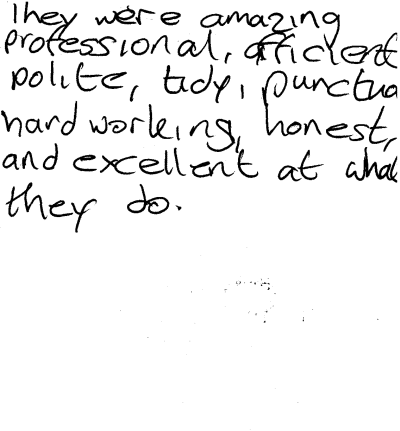 They were amazing
professional, efficient
polite, tidy, punctua
hard working, honest,
and excellent at what
they do.